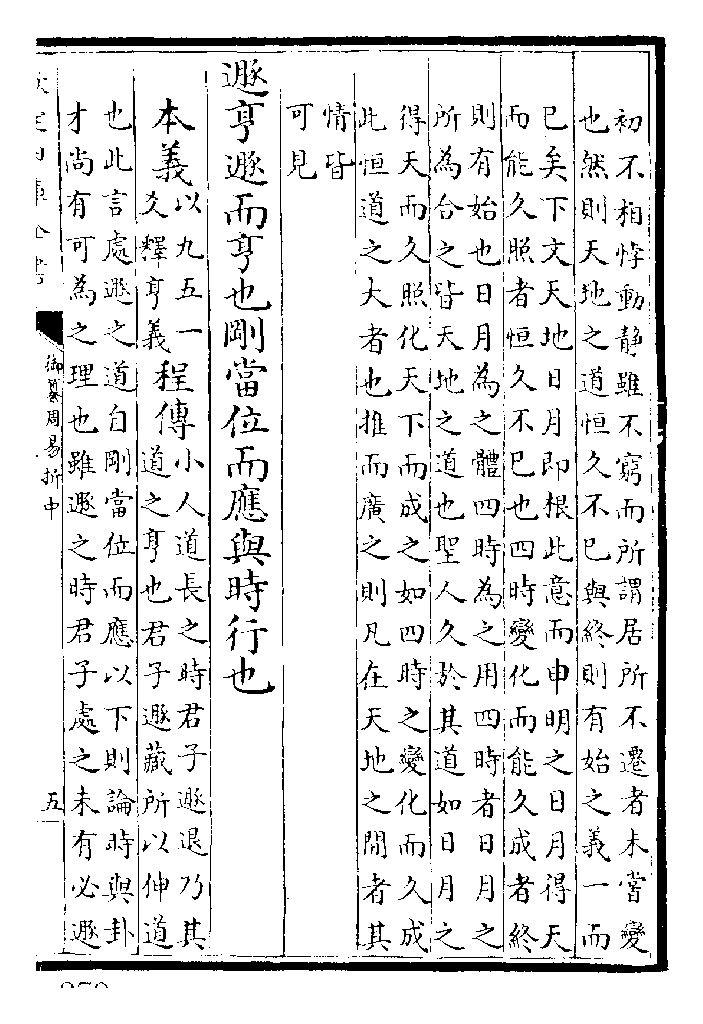 初不相悖動静雖不窮而所謂居所不遷者未嘗變
也然則天地之道恒久不已與終則有始之義一而
已矣下文天地日月即根此意而申明之日月得天
而能久照者恒久不已也四時變化而能久成者終
則有始也日月為之體四時為之用四時者日月之
所為合之皆天地之道也聖人久於其道如日月之
得天而久照化天下而成之如四時之變化而久成
此恒道之大者也推而廣之則凡在天地之間者其
情皆
可見
遯亨遯而亨也剛當位而應與時行也
本義
以九五一
爻釋亨義
程傳
小人道長之時君子遯退乃其
道之亨也君子遯藏所以伸道
也此言處遯之道自剛當位而應以下則論時與卦
才尚有可為之理也雖遯之時君子處之未有必遯
御纂周易折中
五